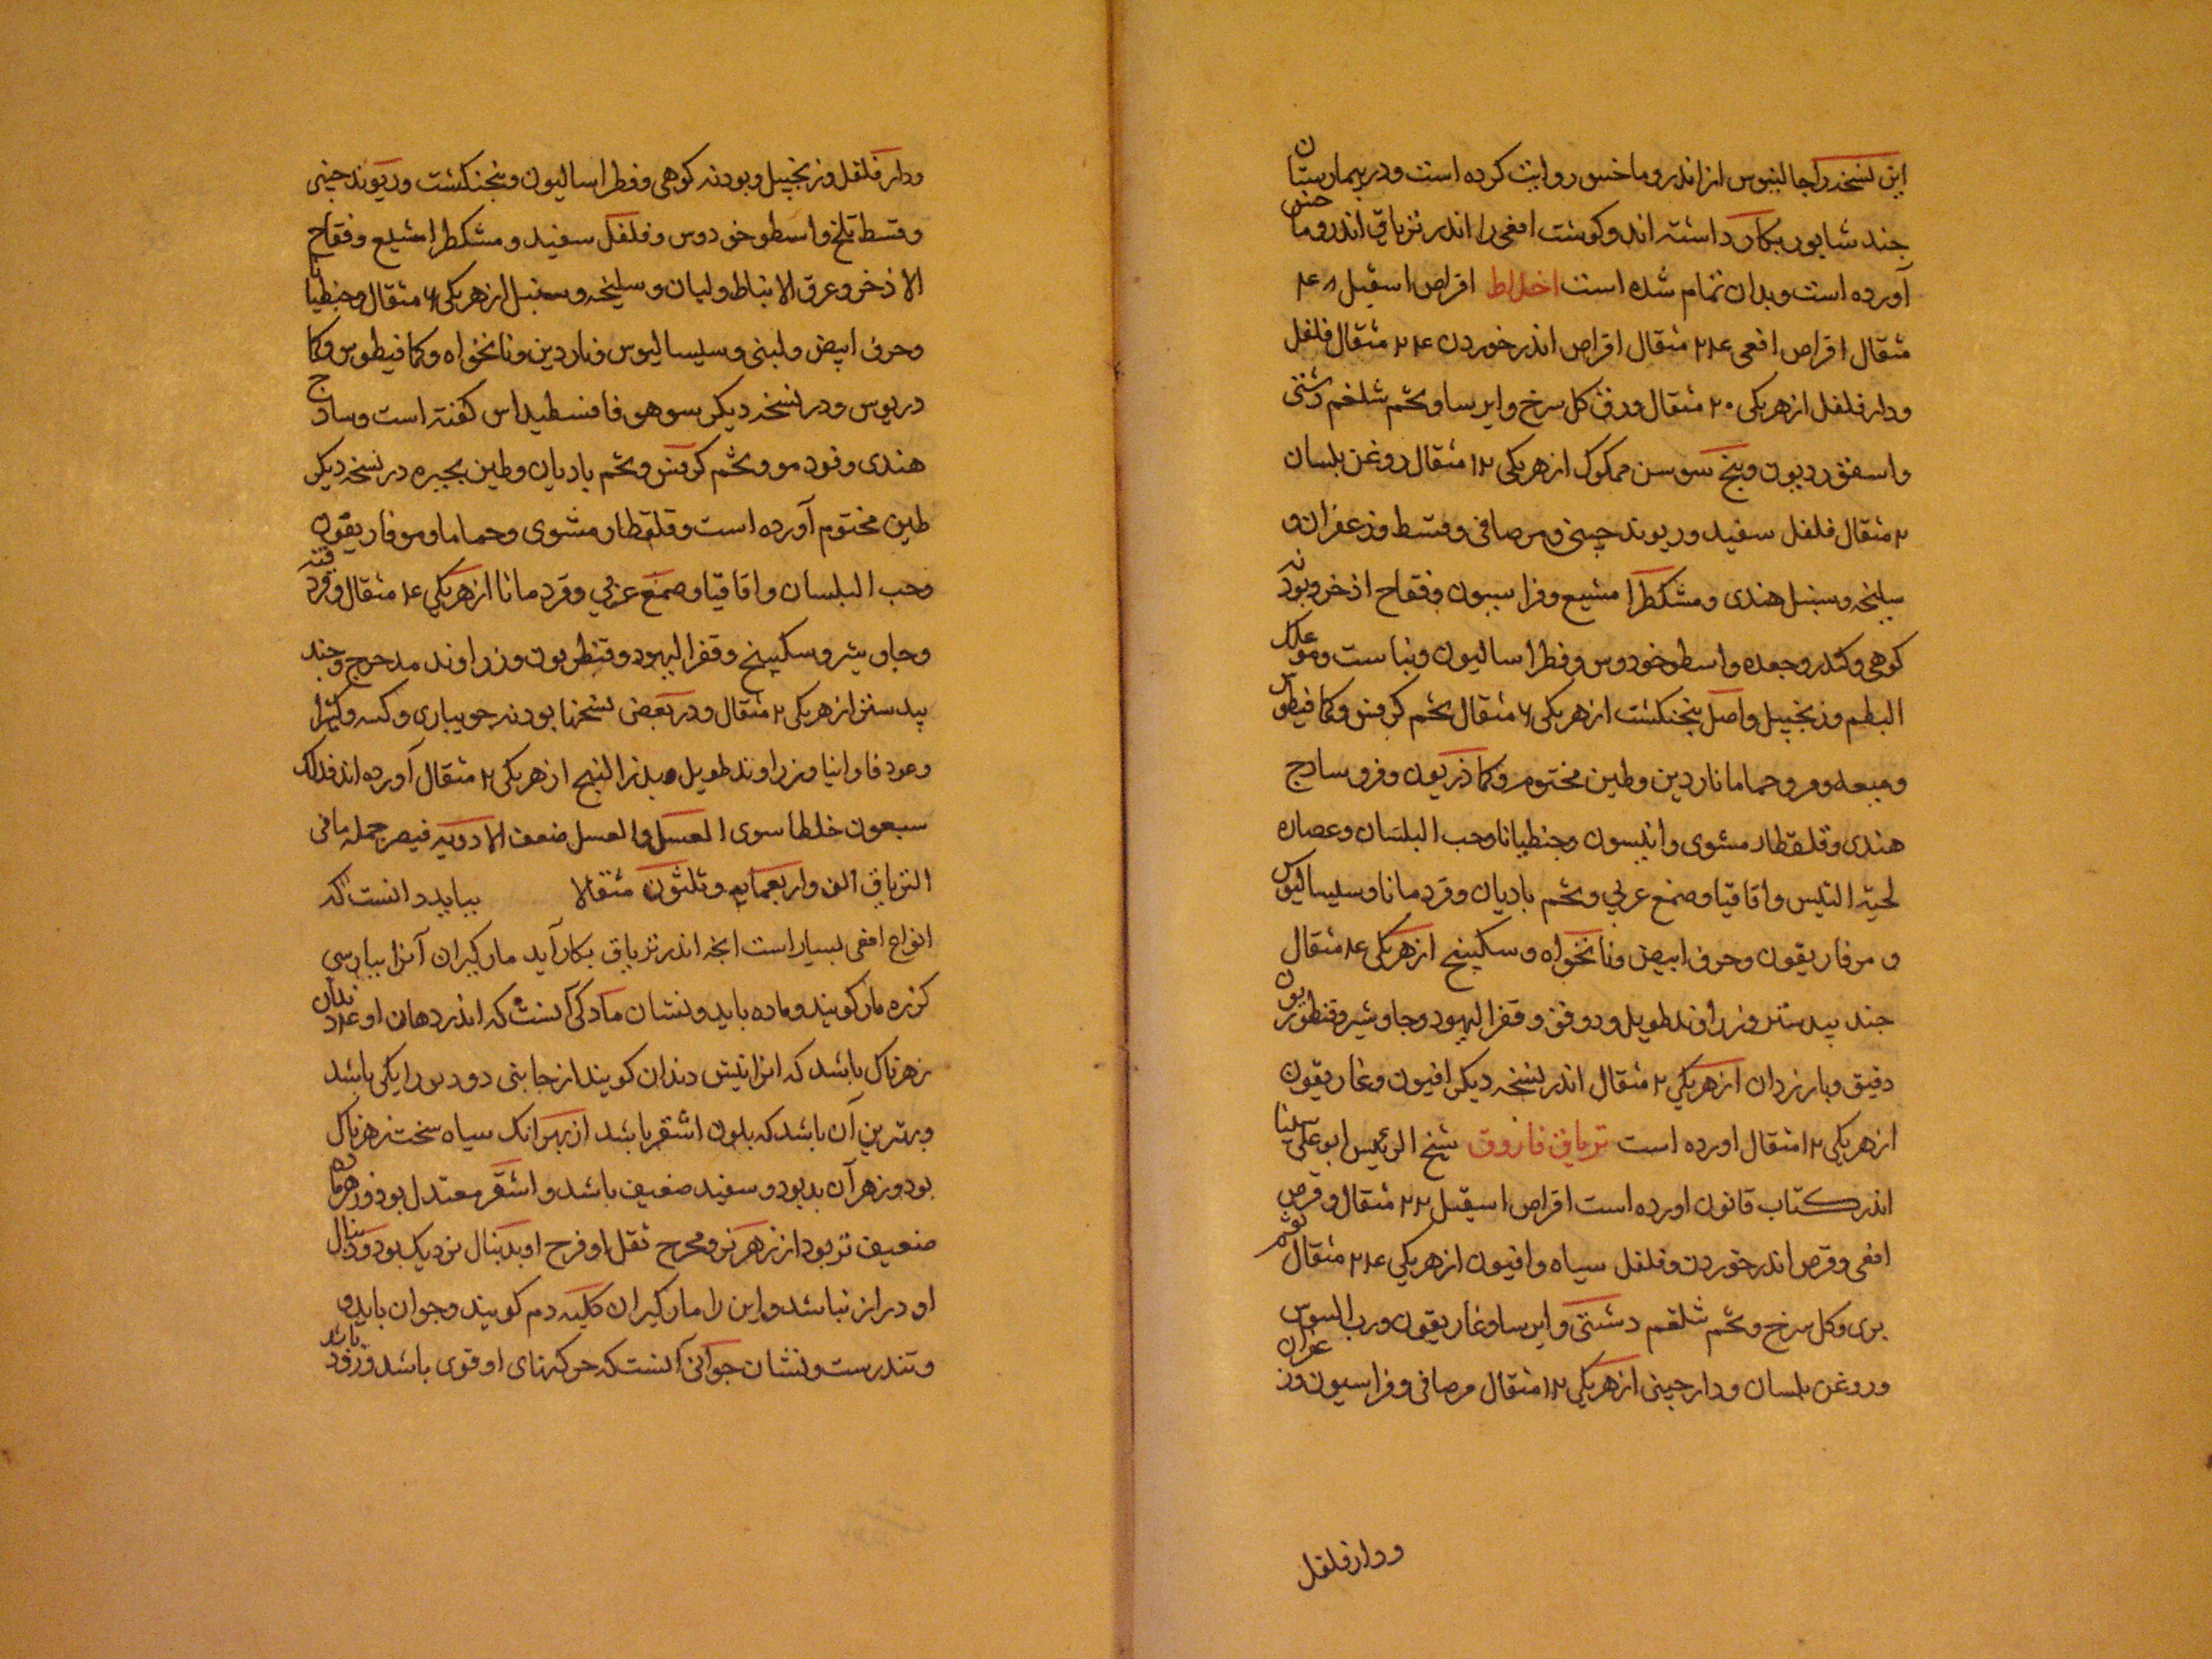 این نسخه را جالینوس از اندروماخس روایت کرده است و در بیمارستان
جند شابور بکار داشته اند و کوشت افعی را اندر تریاق اندروماخس
آورده است و بدان تمام شده است اخلاط اقراص اسقیل ۴۸
مثقال اقراص افعی ۲۴ مثقال اقراص اندرخوردن ۲۴ مثقال فلفل
و دارفلفل از هریکی ۲۰ مثقال ورق کل سرخ و ایرسا و تخم شلغم دشتی
و اسقوردیون و بیخ سوسن مکوک از هریکی ۱۲ مثقال روغن بلسان
۲ مثقال فلفل سفید و ریوند چینی و مر صافی و قسط و زعفران و
سلیخه و سنبل هندی و مشکطرا مشیع و فراسیون و فقاح اذخر و بودنه
کوهی و کندر و جعده و اسطوخودوس و فطراسالیون و نباست و مو علک
البطم و زنجبیل و اصل بنجنکشت از هریکی ۶ مثقال تخم کرفس و کمافیطوس
و میعه و مو و حماما ناردین و طین مختوم و کماذریون و فو و سادج
هندی و قلقطار مشوی و انیسون و جنطیانا و حب البلسان و عصاره
لحیة التیس و اقاقیا و صمغ عربی و تخم بادیان و قردمانا و سیسالیوس
و موفاریقون و حرف ابیض و نانخواه و سکبینج از هریکی ۴ مثقال
جند بیدستر و زراوند طویل و دوقو و قفر الیهود و جاوشیر و قنطوریون
دقیق و بارزدان از هریکی ۲ مثقال اندر نسخه دیکر افیون و غاریقون
از هریکی ۱۲ مثقال اورده است تریاق فاروق شیخ الرئیس ابوعلی سینا
اندر کتاب قانون اورده است اقراص اسقیل ۲۲ مثقال و قرص
افعی و قرص اندرخوردن و فلفل سیاه و افیون از هریکی ۲۴ مثقال ثوم
بری و کل سرخ و تخم شلغم دشتی و ایرسا و غاریقون و رب السوس
و روغن بلسان و دارچینی از هریکی ۱۲ مثقال مر صافی و فراسیون و زعفران
و دارفلفل
و دارفلفل و زنجبیل و بودنه کوهی و فطراسالیون و بنجنکشت و ریوند جینی
و قسط تلخ و اسطوخودوس و فلفل سفید و مشکطرا مشیع و فقاح
الاذخر و عرق الانباط و لبان و سلیخه و سنبل از هریکی ۶ مثقال و جنطیانا
و حرف ابیض و لبنی و سیسالیوس و ناردین و نانخواه و کمافیطوس و کما
دریوس و در نسخه دیکر بسوهو فاقسطیداس کفته است و سادج
هندی و فود مو و تخم کرفس و تخم بادیان و طین بحیره در نسخه دیکر
طین مختوم آورده است و قلقطار مشوی و حماما و موفاریقون
و حب البلسان و اقاقیا و صمغ عربی و قردمانا از هریکی ۴ مثقال و
و جاوشیر و سکبینج و قفر الیهود و قنطریون و زراوند مدحرج و جند
بیدستر از هریکی ۲ مثقال و در بعضی نسخها بودنه جویباری و کسه و کثیرا
و عود فاوانیا و زراوند طویل و بذر البنج از هریکی ۲ مثقال آورده اند فذلک
سبعون خلطا سوی العسل و العسل ضعف الادویه فیصر جمله مافی
التریاق الف و اربعمایه و ثلثون مثقالا بباید دانست که
انواع افعی بسیار است انجه اندر تریاق بکار آید مارکیران آنرا ببارسی
کرزه مار کویند و ماده باید و نشان مادکی آنست که اندر دهان او ۴ دندان
زهرناک باشد که انرا نیش دندان کویند از جانبی دو دیورا یکی باشد
و بهترین آن باشد که بلون اشقر باشد از بهر انک سیاه سخت زهرناک
بود و زهر آن بد بود و سفید ضعیف باشد و اشقر معتدل بود و زهر ماده
ضعیف تر بود از زهر نر و مخرج ثقل او فرج او بدنبال نزدیک بود و دنبال
او دراز نباشد و این را مارکیران کلیه دم کویند و جوان باید و
و تندرست و نشان جوانی آنست که حرکتهای او قوی باشد و زود باشد